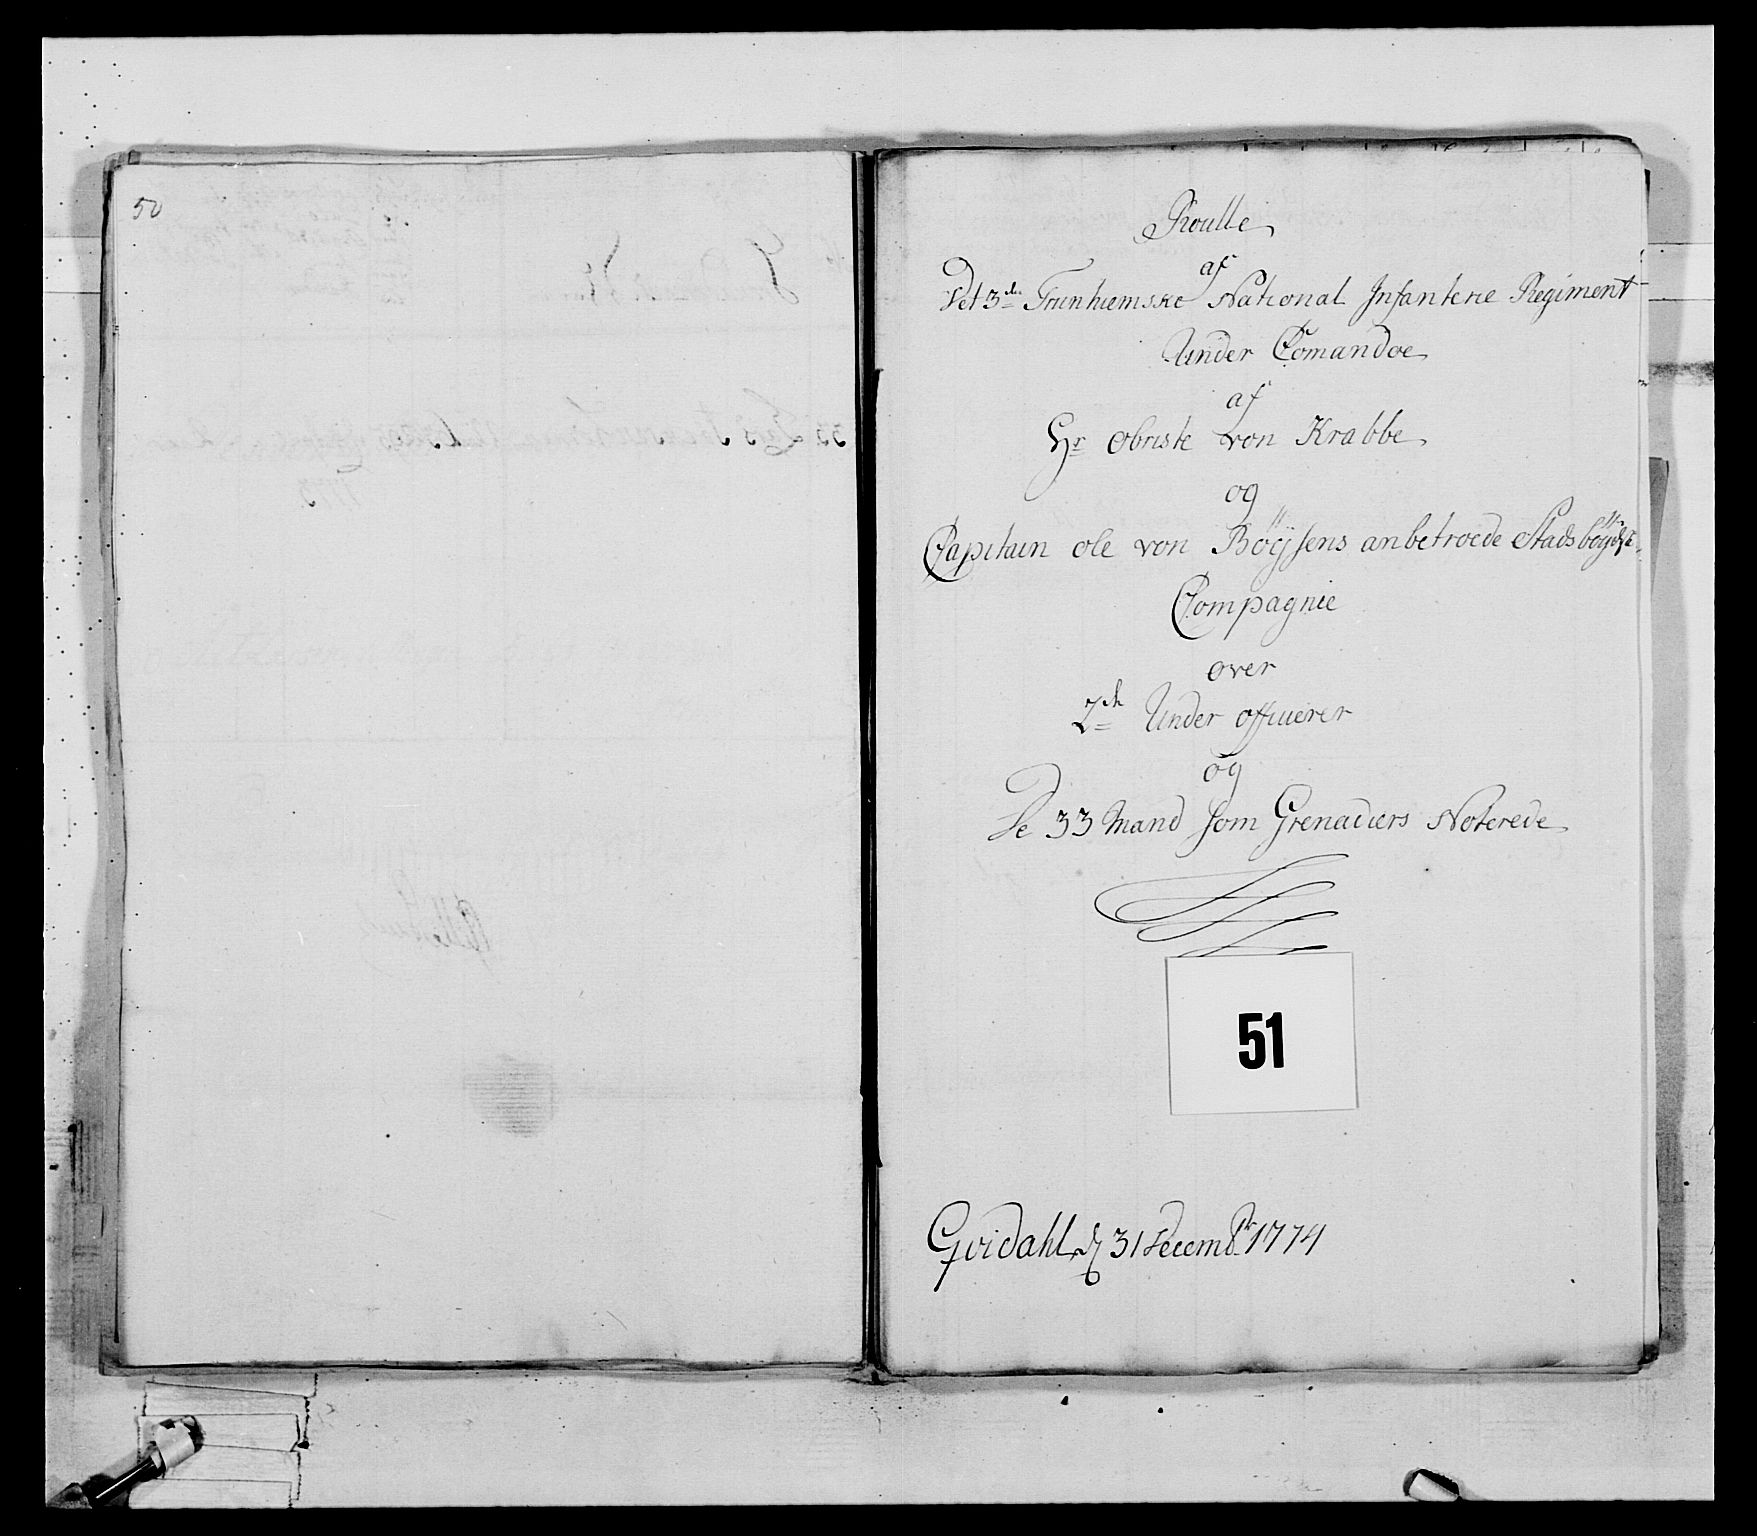 50
Roulle
af
Det 3de Trunhiemske National Infanterie Regiment
Under Comandoe
af
Hr Obriste von Krabbe
og
Capitain ole von Böÿsens anbetroede Stadsböÿdske
Compagnie
over
2de Under officierer
og
De 33 Mand som Grenadiers Noterede
51
Qvidahl d 31 Decembr 1774